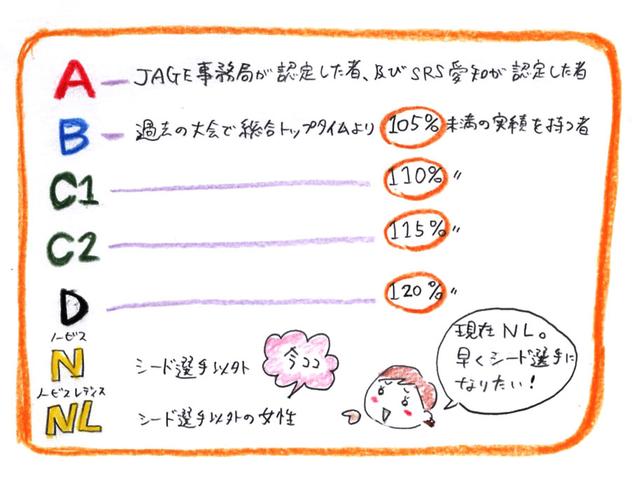 A ― JAGE事務局が認定した者、及びSRS愛知が認定した者
B ― 過去の大会で総合トップタイムより 105% 未満の実績を持つ者
C1 ― 110% 〃
C2 ― 115% 〃
D ― 120% 〃
ノービス
N シード選手以外 今ココ
ノービスレディス
NL シード選手以外の女性
現在NL。
早くシード選手に
なりたい!